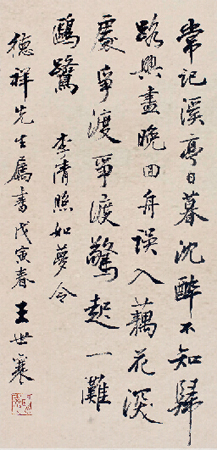 常記溪亭日暮沈醉不知歸
路興盡晚回舟誤入藕花深
處爭渡爭渡驚起一灘
鷗鷺 李清照如夢令
德祥先生屬書戊寅春王世襄